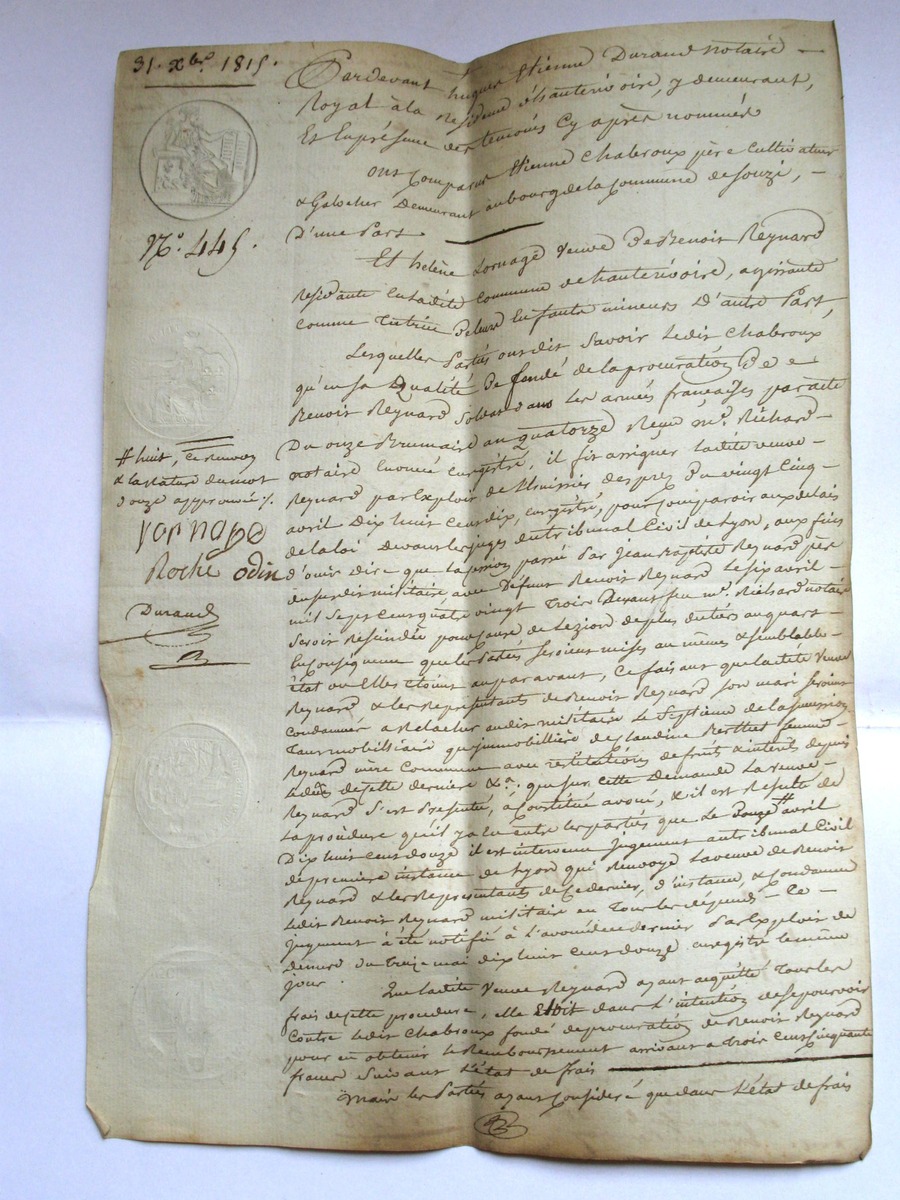 31. Xbre. 1815.
N.o 445.
# huit, ce renvoy
& la rature du mot
douze approuvé /.
vornage
Roche odin
Durand
Pardevant hugues Etienne Durand notaire
Royal à la Residence d'hauterivoire, y demeurant,
Et En présence des temoins Cy après nommés
ont Comparus Etienne Chabroux père Cultivateur
& Galocher Demeurant au bourg de la Commune de Souzi, -
D'une Part.
Et helène vornage veuve De Benoit Reynard
Residante En ladite Commune de hauterivoire, agissante
comme Tutrice De leurs Enfants mineurs D'autre Part,
Lesquelles Parties ont dit Savoir Ledit Chabroux
qu'en sa Qualité De fondé de la procuration De
Benoit Reynard Soldat dans les armées françaises par acte
Du onze Brumaire an quatorze Reçu me. Richard -
notaire Enregistré, il fit assigner ladite veuve -
Reynard par Exploit de Desprez Du vingt Cinq -
avril Dix huit Cent dix, Enregistré, pour Comparoir aux delais
de la loi devant les juges du tribunal Civil de Lyon, aux fins
d'ouir dire que la passé Par jean Baptiste Reynard père
dudit militaire avec Défunt Benoit Reynard Le six avril -
mil Sept Cent quatre vingt Trois Devant feu me. Richard notaire
Seroit Rescindée pour Cause de Lezion de plus du tiers au quart -
En Conséquence que les Parties Seroient mises au même & semblable -
état ou Elles étoient auparavant, Ce faisant que ladite veuve
Reynard & les Représentants de Benoit Reynard son mari seroient
Condamnés a Relacher audit militaire Le Septième de la Succession
Tant mobilliaire qu'immobillière de Claudine Berthet femme -
Reynard mère Commune avec restitutions de fruits & interêts depuis
le décès de cette dernière &a. que sur cette Demande La veuve -
Reynard S'est Présentée, à Constitué avoué, & il est Resulté de
La procédure qu'il y a eu entre les parties que Le Douze # avril
Dix huit Cent douze il est intervenu jugement au tribunal Civil
de première instance de Lyon qui Renvoye La veuve de Benoit
Reynard & les Représentants de Ce dernier, d'instance, & Condamne
Ledit Benoit Reynard militaire en Tous les dépends - Ce -
jugement à été notifié à l'avoué de ce dernier Par Exploit de
Demure du Treize mai dix huit Cent douze enregistré le même
jour.
Que ladite veuve Reynard ayant acquitté Tous les
frais de cette procédure, elle Etoit dans L'intention de se pourvoir
Contre Ledit Chabroux fondé de procuration de Benoit Reynard
pour en obtenir Le Remboursement arrivant a Trois Cent Cinquante
francs Suivant L'état de frais
Mais les Parties ayant Considéré que dans L'état de frais